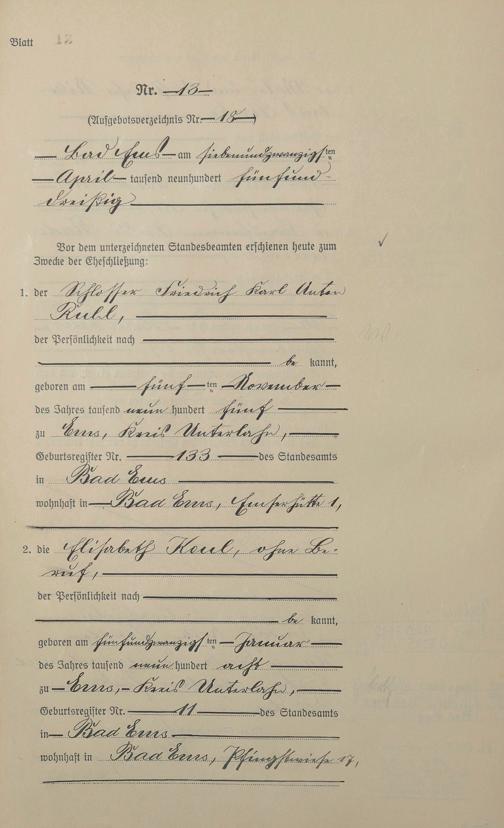 Blatt 12
Nr. 13
(Aufgebotsverzeichnis Nr. 18)
Bad Ems am siebenundzwanzigsten
April tausend neunhundert fünfund-
dreißig
Vor dem unterzeichneten Standesbeamten erschienen heute zum
Zwecke der Eheschließung:
1. der Schlosser Friedrich Karl Anton
Rull,
der Persönlichkeit nach
be kannt,
geboren am fünften November
des Jahres tausend neun hundert fünf
zu Ems, Kreis Unterlahn,
Geburtsregister Nr. 133 des Standesamts
in Bad Ems
wohnhaft in Bad Ems, Emserhütte 1,
2. die Elisabeth Keul, ohne Be-
ruf,
der Persönlichkeit nach
be kannt,
geboren am fünfundzwanzigsten Januar
des Jahres tausend neun hundert acht
zu Ems, Kreis Unterlahn,
Geburtsregister Nr. 11 des Standesamts
in Bad Ems
wohnhaft in Bad Ems, Pfingstwiese 17,